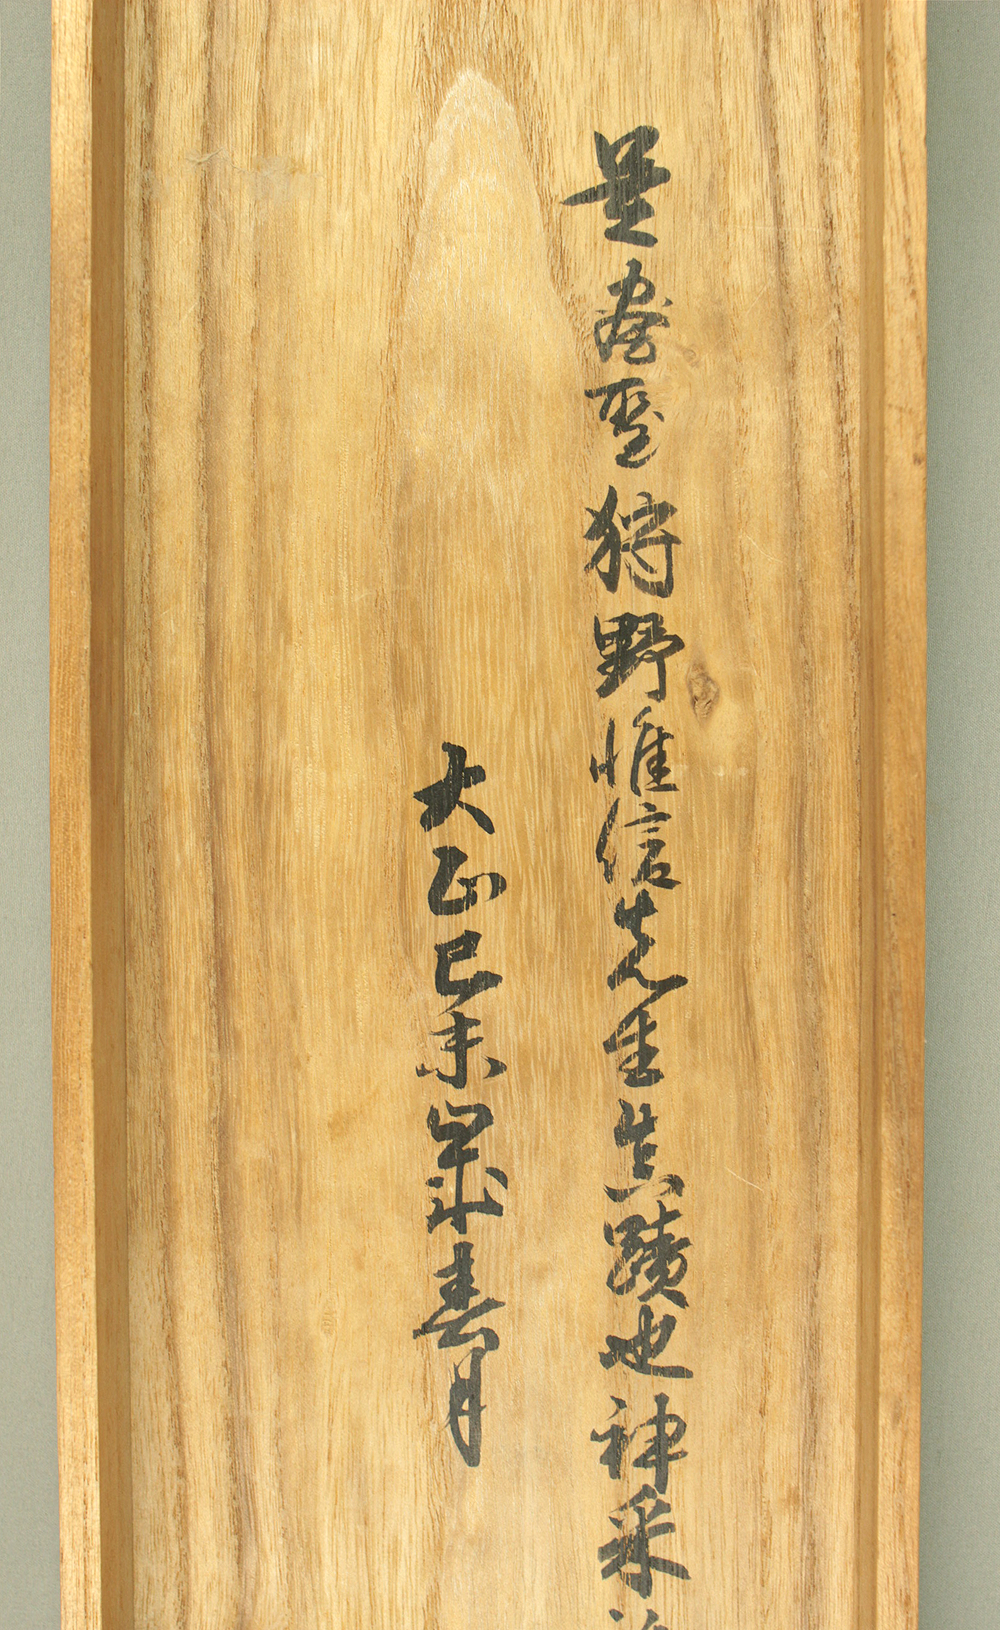 是聖狩野惟信先生真蹟也神采
大正己未嵗春月